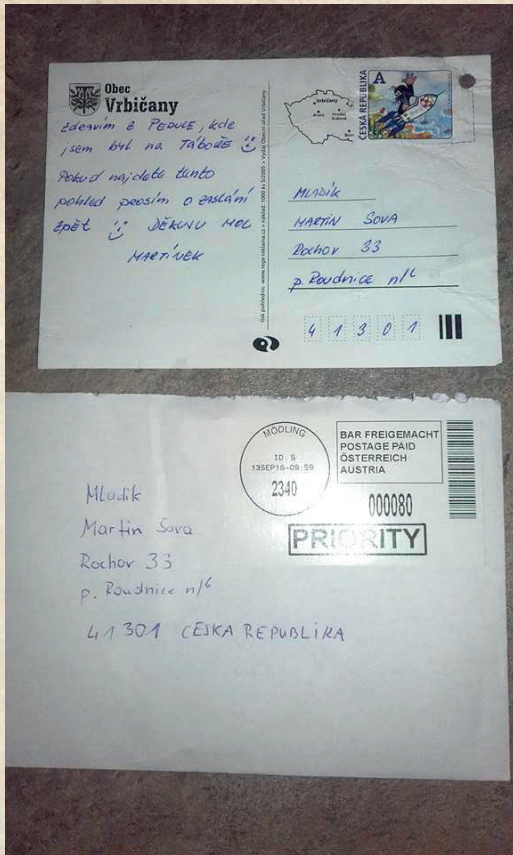 Obec
Vrbičany
Zdravím z PEDUCE, kde
jsem byl na TÁBOŘE
Pokud najdete tento
pohled prosím o zaslání
zpět DĚKUJU MOC
MARTÍNEK
Vrbičany
A
ČESKÁ REPUBLIKA
MLADÍK
MARTIN SOVA
Rochov 33
p. Roudnice n/L
4 1 3 0 1
MÖDLING
ID 5
13SEP16-09:59
2340
BAR FREIGEMACHT
POSTAGE PAID
ÖSTERREICH
AUSTRIA
000080
PRIORITY
Mladik
Martin Sova
Rochov 33
p. Roudnice n/6
41301 CESKA REPUBLIKA